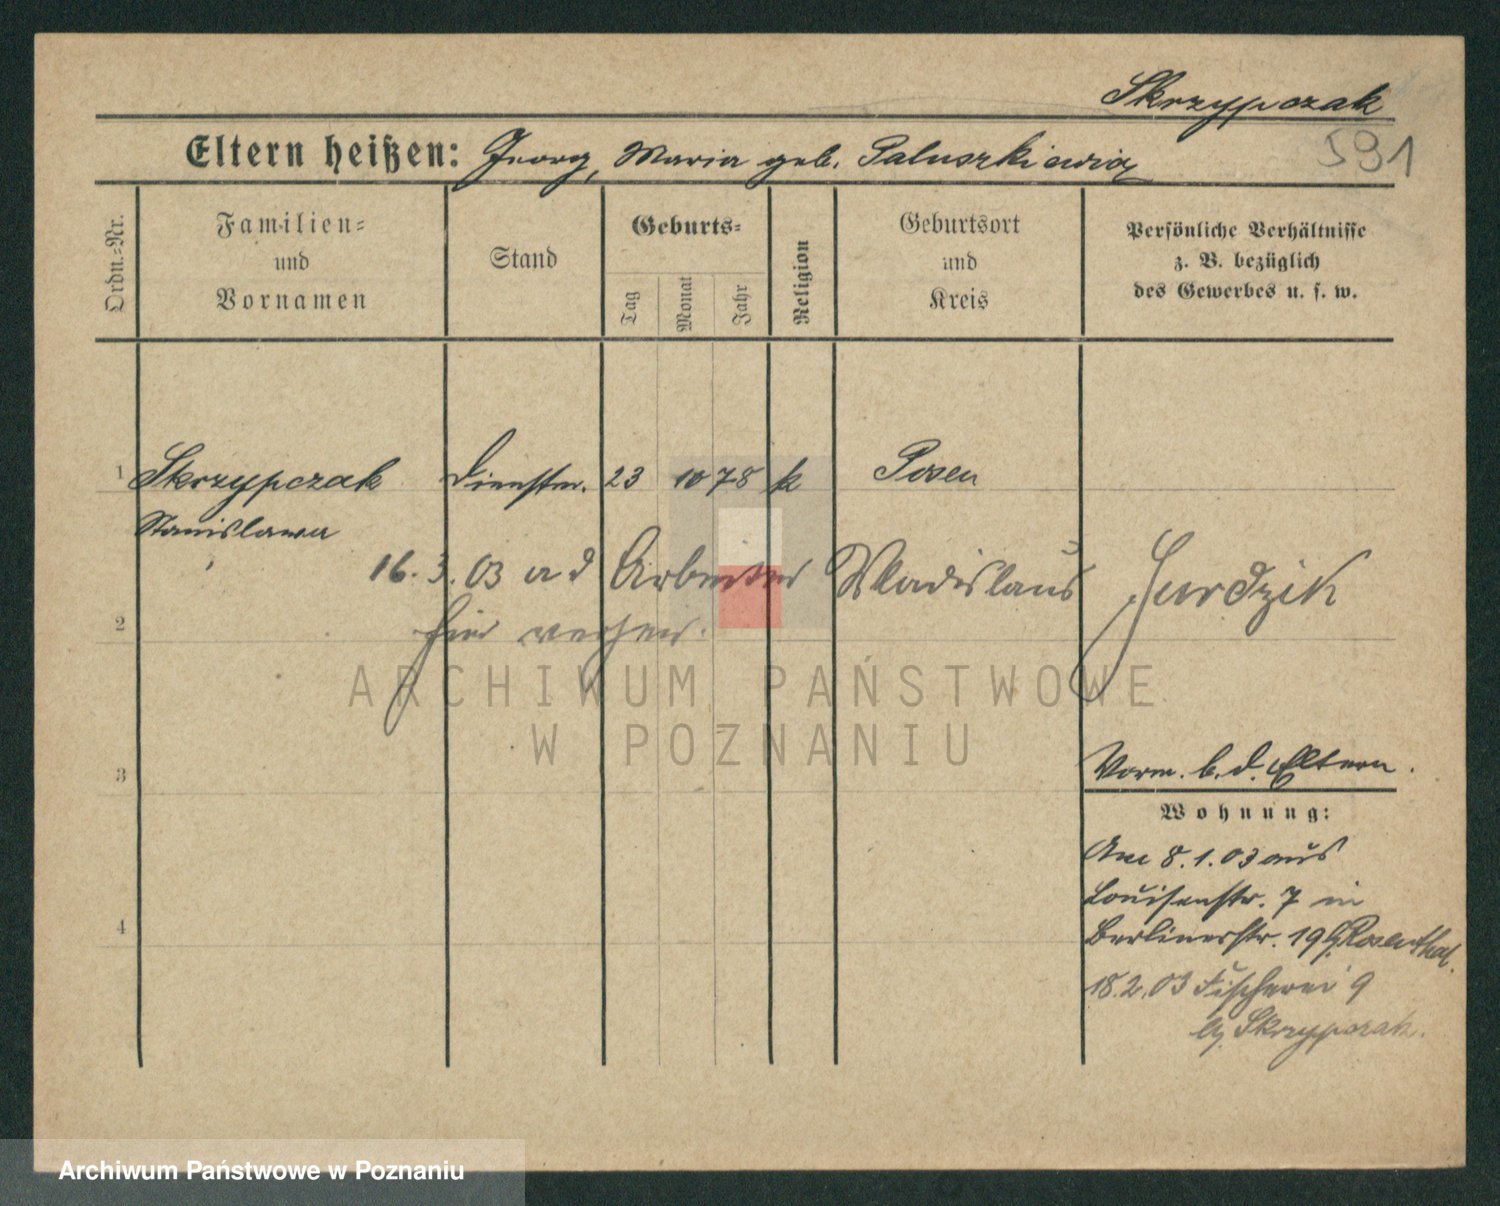 Skrzypczak
591
Eltern heißen: Georg, Maria geb. Paluszkiewicz
Ordn.=Nr.
Familien=
und
Vornamen
Stand
Geburts=
Tag
Monat
Jahr
Religion
Geburtsort
und
Kreis
Persönliche Verhältnisse
z. B. bezüglich
des Gewerbes u. s. w.
1 Skrzypczak Dienstm. 23 10 78 k Posen
Stanislawa
16.3.03 a d Arbeiter Wladislaus
hier verheir.
2
3
4
Vorm. b. d. Eltern.
Wohnung:
Am 8.1.03 aus
Louisenstr. 7 in
Berlinerstr. 19 b. Rosenthal.
18.2.03 Fischerei 9
b. Skrzypczak.
ARCHIWUM PAŃSTWOWE
W POZNANIU
Archiwum Państwowe w Poznaniu